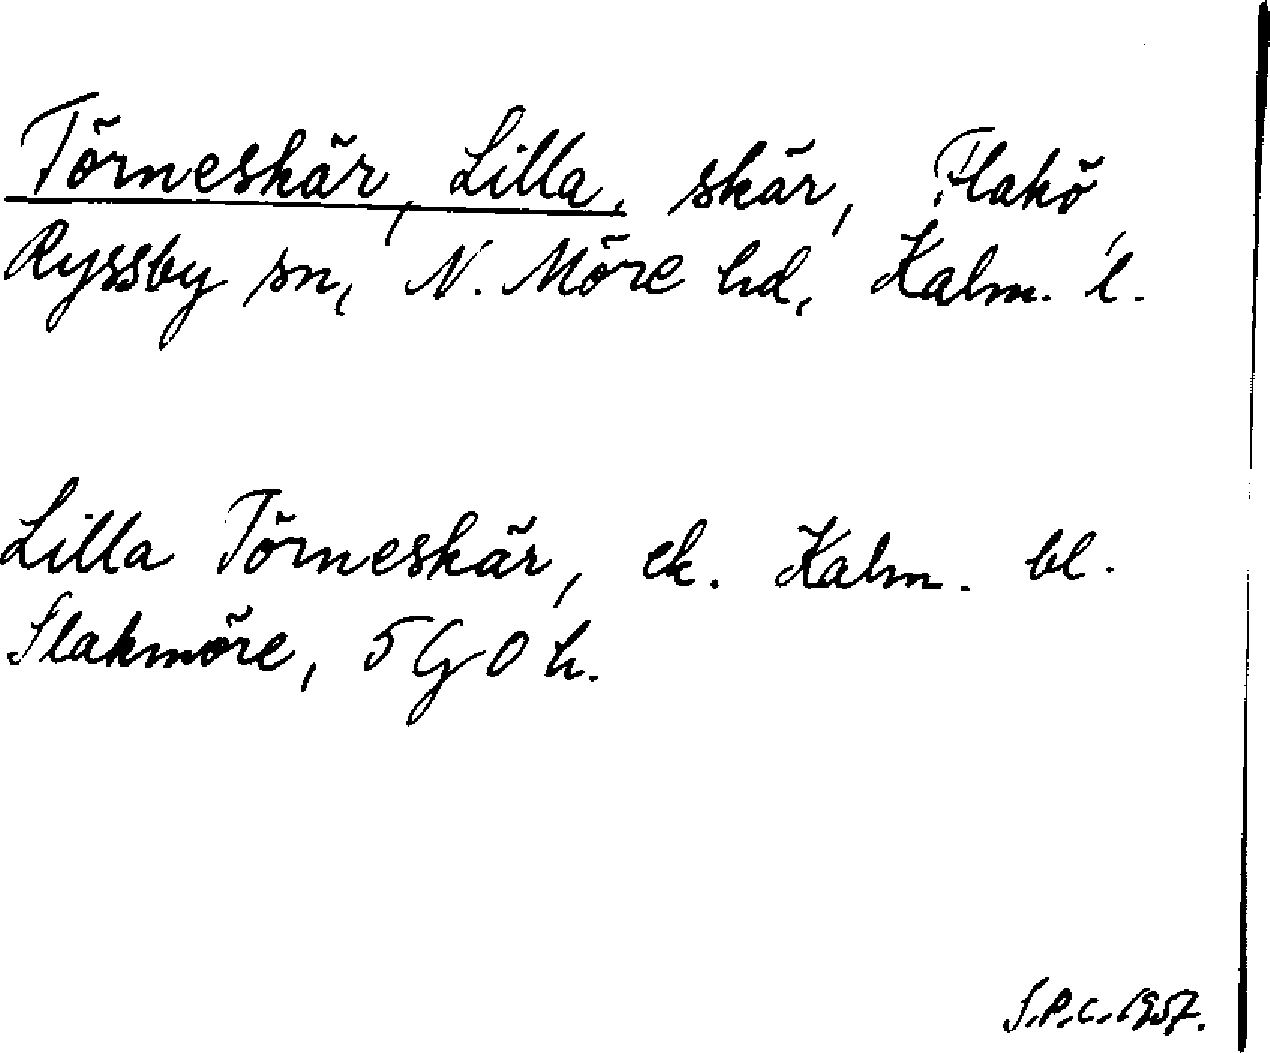 Törneskär, Lilla, skär, Flakö,
Ryssby sn, N. Möre hd, Kalm. l.
Lilla Törneskär, ek. Kalm. bl.
Slakmöre, 5 G O h.
S.P.C. 1957.